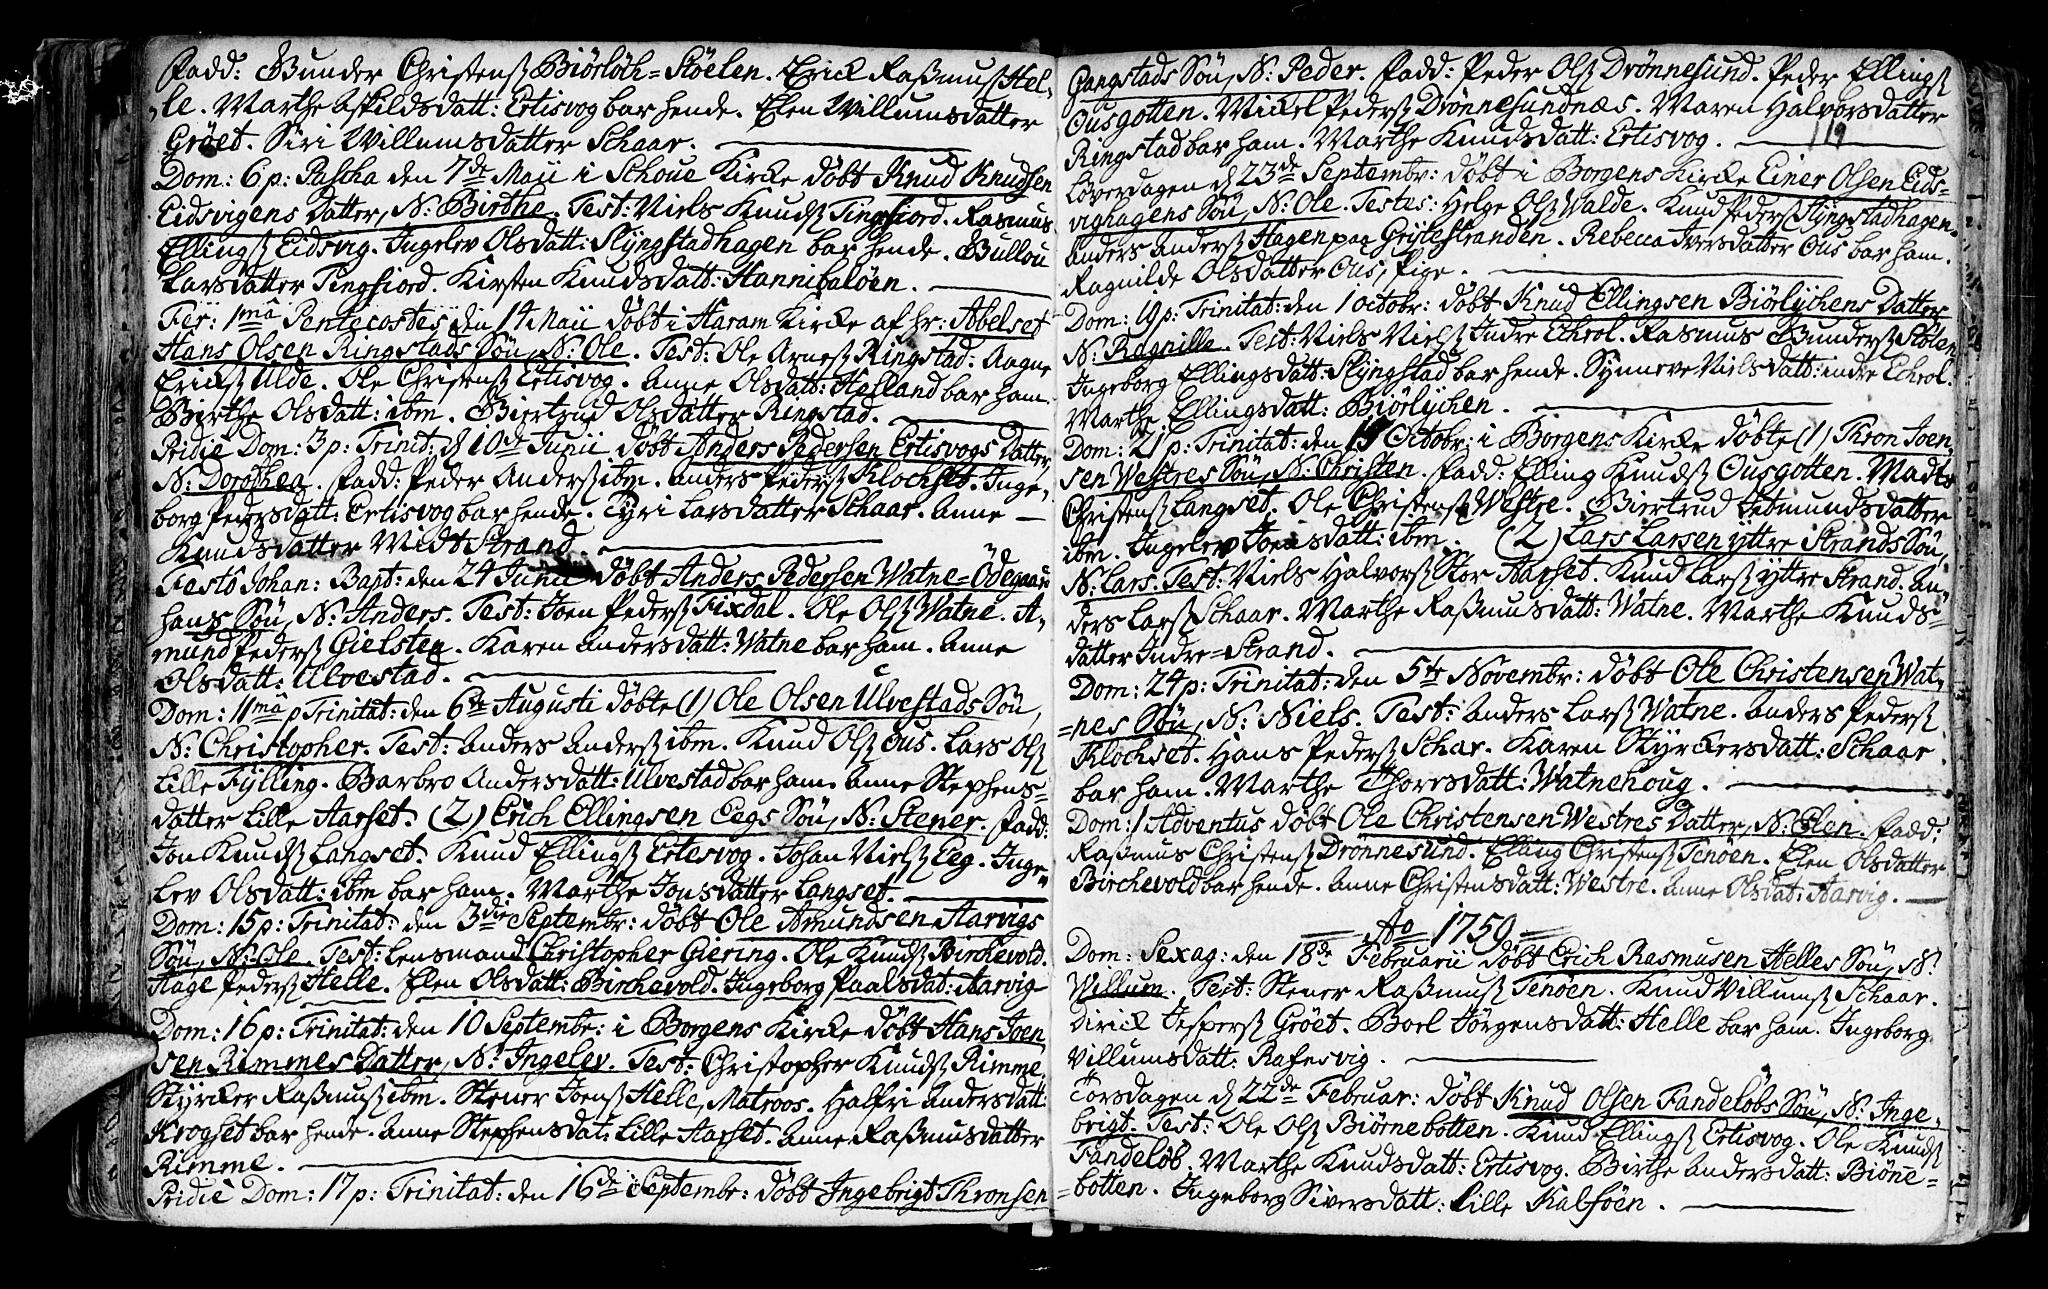 Fadd: Gunder Christensß Biörløch=Støelen. Erick Raßmusß Hel-
le. Marthe Askildsdatt: Ertisvog bar hende. Elen Willumsdatter
Grøet. Siri Willumsdatter Schaar.
Dom: 6 p: Pascha den 7de Maii i Schoue Kirke døbt Knud Knudsen
Eidsvigens Datter, N: Birthe. Test: Niels Knudsß Tingfiord. Rasmus
Ellingsß Eidsvig. Ingelev Olsdatt: Slÿngstadhagen bar hende. Gullou
Larsdatter Tingfiord. Kirsten Knudsdatt: Hannibaløen.
Fer: 1mâ Pentecostes den 14 Maii døbt i Haram Kirke af hr: Abelset
Hans Olsen Ringstads Søn, N: Ole. Test: Ole Arnesß Ringstad. Aagne
Ericksß Ulde. Ole Christensß Ertisvog. Anne Olsdatt: Helland bar ham
Birthe Olsdatt: ibm. Giertrud Olsdatter Ringstad.
Pridie Dom: 3 p: Trinit: d 10de Junii døbt Anders Pedersen Ertisvogs Datter,
N: Dorothea. Fadd: Peder Andersß ibm. Anders Pedersß Klochset. Inge-
borg Pedersdatt: Ertisvog bar hende. Tyri Larsdatter Schaar. Anne
Knudsdatter Midt Strand
Festo Johan: Bapt: den 24 Junii døbt Anders Pedersen Watne=Ödegaar
hans Søn, N: Anders. Test: Joen Pedersß Fixdal. Ole Olsß Watne. A-
mund Pedersß Gielsten. Karen Andersdatt: Watne bar ham. Anne
Olsdatt: Ulvestad.
Dom: 11mâ p Trinitat: den 6te Augusti døbte (1) Ole Olsen Ulvestads Søn,
N: Christopher. Test: Anders Andersß ibm. Knud Olsß Ous. Lars Olsß
Lille Fÿlling. Barbro Andersdatt: Ulvestad bar ham. Anne Stephens-
datter Lille Aarset. (2) Erich Ellingsen Eegs Søn, N: Stener. Fadd:
Jon Knudsß Langset. Knud Ellingsß Ertisvog. Johan Nielsß Eeg. Inge-
lev Olsdatt: ibm bar ham. Marthe Jonsdatter Langset.
Dom: 15 p: Trinitat: den 3die Septembr: døbt Ole Amundsen Aarvigs
Søn, N: Ole. Test: Lensmand Christopher Giering. Ole Knudsß Birchevold.
Aage Pedersß Helle. Elen Olsdatt: Birchevold. Ingeborg Paalsdat: Aarvig
Dom: 16 p: Trinitat: den 10 Septembr: i Borgens Kirke døbt Hans Joen
sen Rimmes Datter, N: Ingelev. Test: Christopher Knudsß Rimme.
Stÿrcker Raßmusß ibm. Stener Joensß Helle, Matroos. Halfri Andersdatt:
Krogset bar hende. Anne Stephensdat: Lille Aarset. Anne Raßmusdatter
Rimme.
Pridie Dom: 17 p: Trinitat: den 16de Septembr: døbt Ingebrigt Thronsen
Gangstads Søn, N: Peder. Fadd: Peder Olsß Drønnesund. Peder Ellingsß
Ousgotten. Mickel Pedersß Drønnesundnæs. Maren Halvorsdatter
119
Ringstad bar ham. Marthe Knudsdatt: Ertisvog.
Løverdagen d 23de Septembr: døbt i Borgens Kircke Einer Olsen Eids=
vighagens Søn, N: Ole. Testes: Helge Olsß Walde. Knud Pedersß Slÿngstadhagen.
Anders Andersß Hagen paa Gritestranden. Rebecca Iversdatter Ous bar ham.
Ragnilde Olsdatter Ous, Pige.
Dom: 19 p: Trinitat: den 1 Octobr: døbt Knud Ellingsen Biörlÿchens Datter
N: Ragnille. Test: Niels Nielsß Indre Echrol. Rasmus Gundersß Støelen,
Ingeborg Ellingsdatt: Slÿngstad bar hende. Sÿnneve Nielsdatt: indre Echrol.
Marthe Ellingsdatt: Biörlÿchen.
Dom: 21 p: Trinitat: den 15 Octobr: i Borgens Kircke døbte (1) Thron Joen
sen Westres Søn, N: Christen. Fadd: Elling Knudsß Ousgotten. Mads
Christensß Langset. Ole Christensß Westre. Giertrud Getmundsdatter
ibm. Ingelev Joensdatt: ibm. (2) Lars Larsen ÿttre Strands Søn,
N: Lars. Test: Niels Halvorsß Stor Aarset. Knud Larsß ÿttre Strand. An-
ders Larsß Schaar. Marthe Raßmusdatt: Watne. Marthe Knuds-
datter Indre=Strand.
Dom: 24 p: Trinitat: den 5te Novembr: døbt Ole Christensen Wat-
=nes Søn, N: Niels. Test: Anders Larsß Watne. Anders Pedersß
Klochset. Hans Pedersß Schar. Karen Stÿrckersdatt: Schaar
bar ham. Marthe Thorsdatt: Watnehoug.
Dom: 1 Adventus døbt Ole Christensen Westres Datter, N: Elen. Fadd:
Raßmus Christensß Drønnesund. Elling Christensß Tenøen. Elen Olsdatter
Birchevold bar hende. Anne Christensdatt: Westre. Anne Olsdat: Aarvig.
Ao 1759
Dom: Sexag: den 18de Februarii døbt Erich Rasmusen Helles Søn, N:
Willum. Test: Stener Raßmusß Tenøen. Knud Villumsß Schaar.
Dirick Jespersß Grøet. Boel Jörgensdatt: Helle bar ham. Ingeborg
Villumsdatt: Rafnsvig.
Torsdagen d 22de Februar: døbt Knud Olsen Fandeløbs Søn, N: Inge-
brigt. Test: Ole Olsß Biørnebotten. Knud Ellingsß Ertisvog. Ole Knudsß
Fandeløb. Marthe Knudsdatt: Ertisvog. Birthe Andersdatt: Biørne=
=botten. Ingeborg Siversdatt: Lille Kalføen.